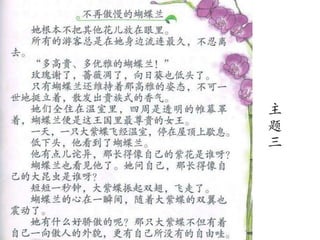 不再傲慢的蝴蝶兰!
她根本不把其他花儿放在眼里。
所有的游客总是在她身边流连最久，不忍离
去。
“多高贵、多优雅的蝴蝶兰！”
玫瑰谢了，蔷薇凋了，向日葵也低头了。
只有蝴蝶兰还维持着那高雅的姿态，不可一
世地挺立着，散发出贵族式的香气。
她们全住在温室里，四周是透明的帷幕罩
着，蝴蝶兰便是这王国里最尊贵的女王。
一天，一只大紫蝶飞经温室，停在屋顶上歇息。
低下头，他看到了蝴蝶兰。
他有点儿诧异，那长得像自己的紫花是谁呀？
蝴蝶兰也看见他了。她问自己，那长得像自
己的大昆虫是谁呀？
短短一秒钟，大紫蝶振起双翅，飞走了。
蝴蝶兰的心在一瞬间，随着大紫蝶的双翼也
震动了。
她有什么好骄傲的呢？那只大紫蝶不但有着
自己一向傲人的外貌，更有自己所没有的自由哇。
主
题
三